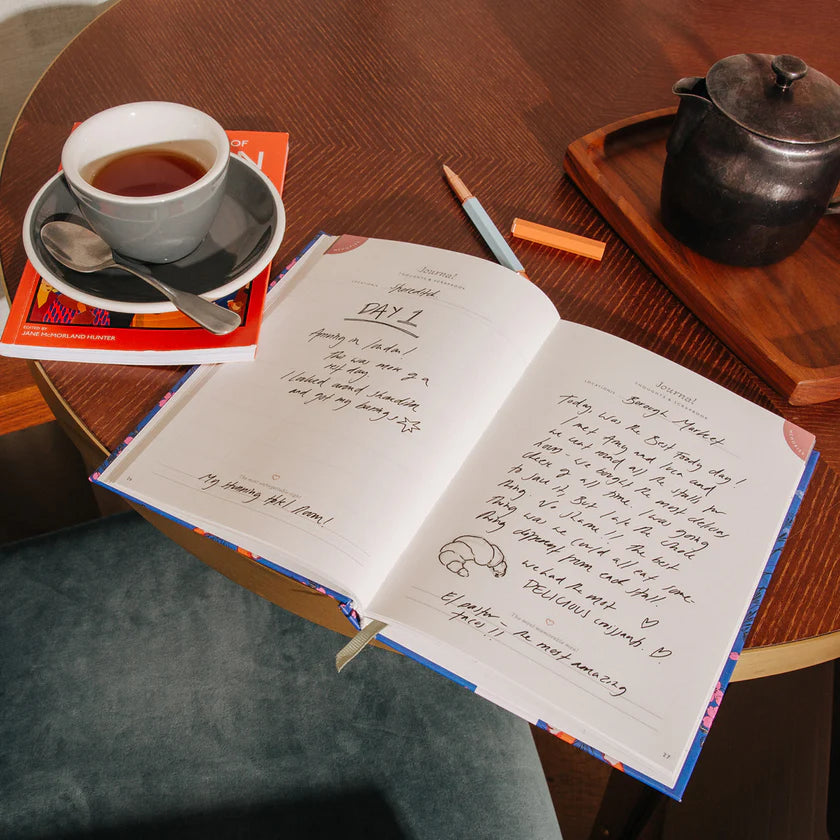 OF
EDITED BY
JANE McMORLAND HUNTER
Journal
THOUGHTS & SCRAPBOOK
LOCATIONS Shoreditch
DAY 1
Arriving in London!
This was more of a
rest day.
I looked around shoreditch
and got my bearings
The most unforgettable sight
My Stunning Hotel Room!
26
Journal
THOUGHTS & SCRAPBOOK
LOCATIONS Borough Market
Today, was the Best Foody day!
I met Amy and Luca and
we went round all the stalls for
hours - we bought the most delicious
cheese of all time. I was going
to save it, But I ate the whole
thing. No shame!! The best
thing was we could all eat some-
thing different from each stall!
we had the most
DELICIOUS croissants.
The most memorable meal
El pastor - the most amazing
tacos!!
27